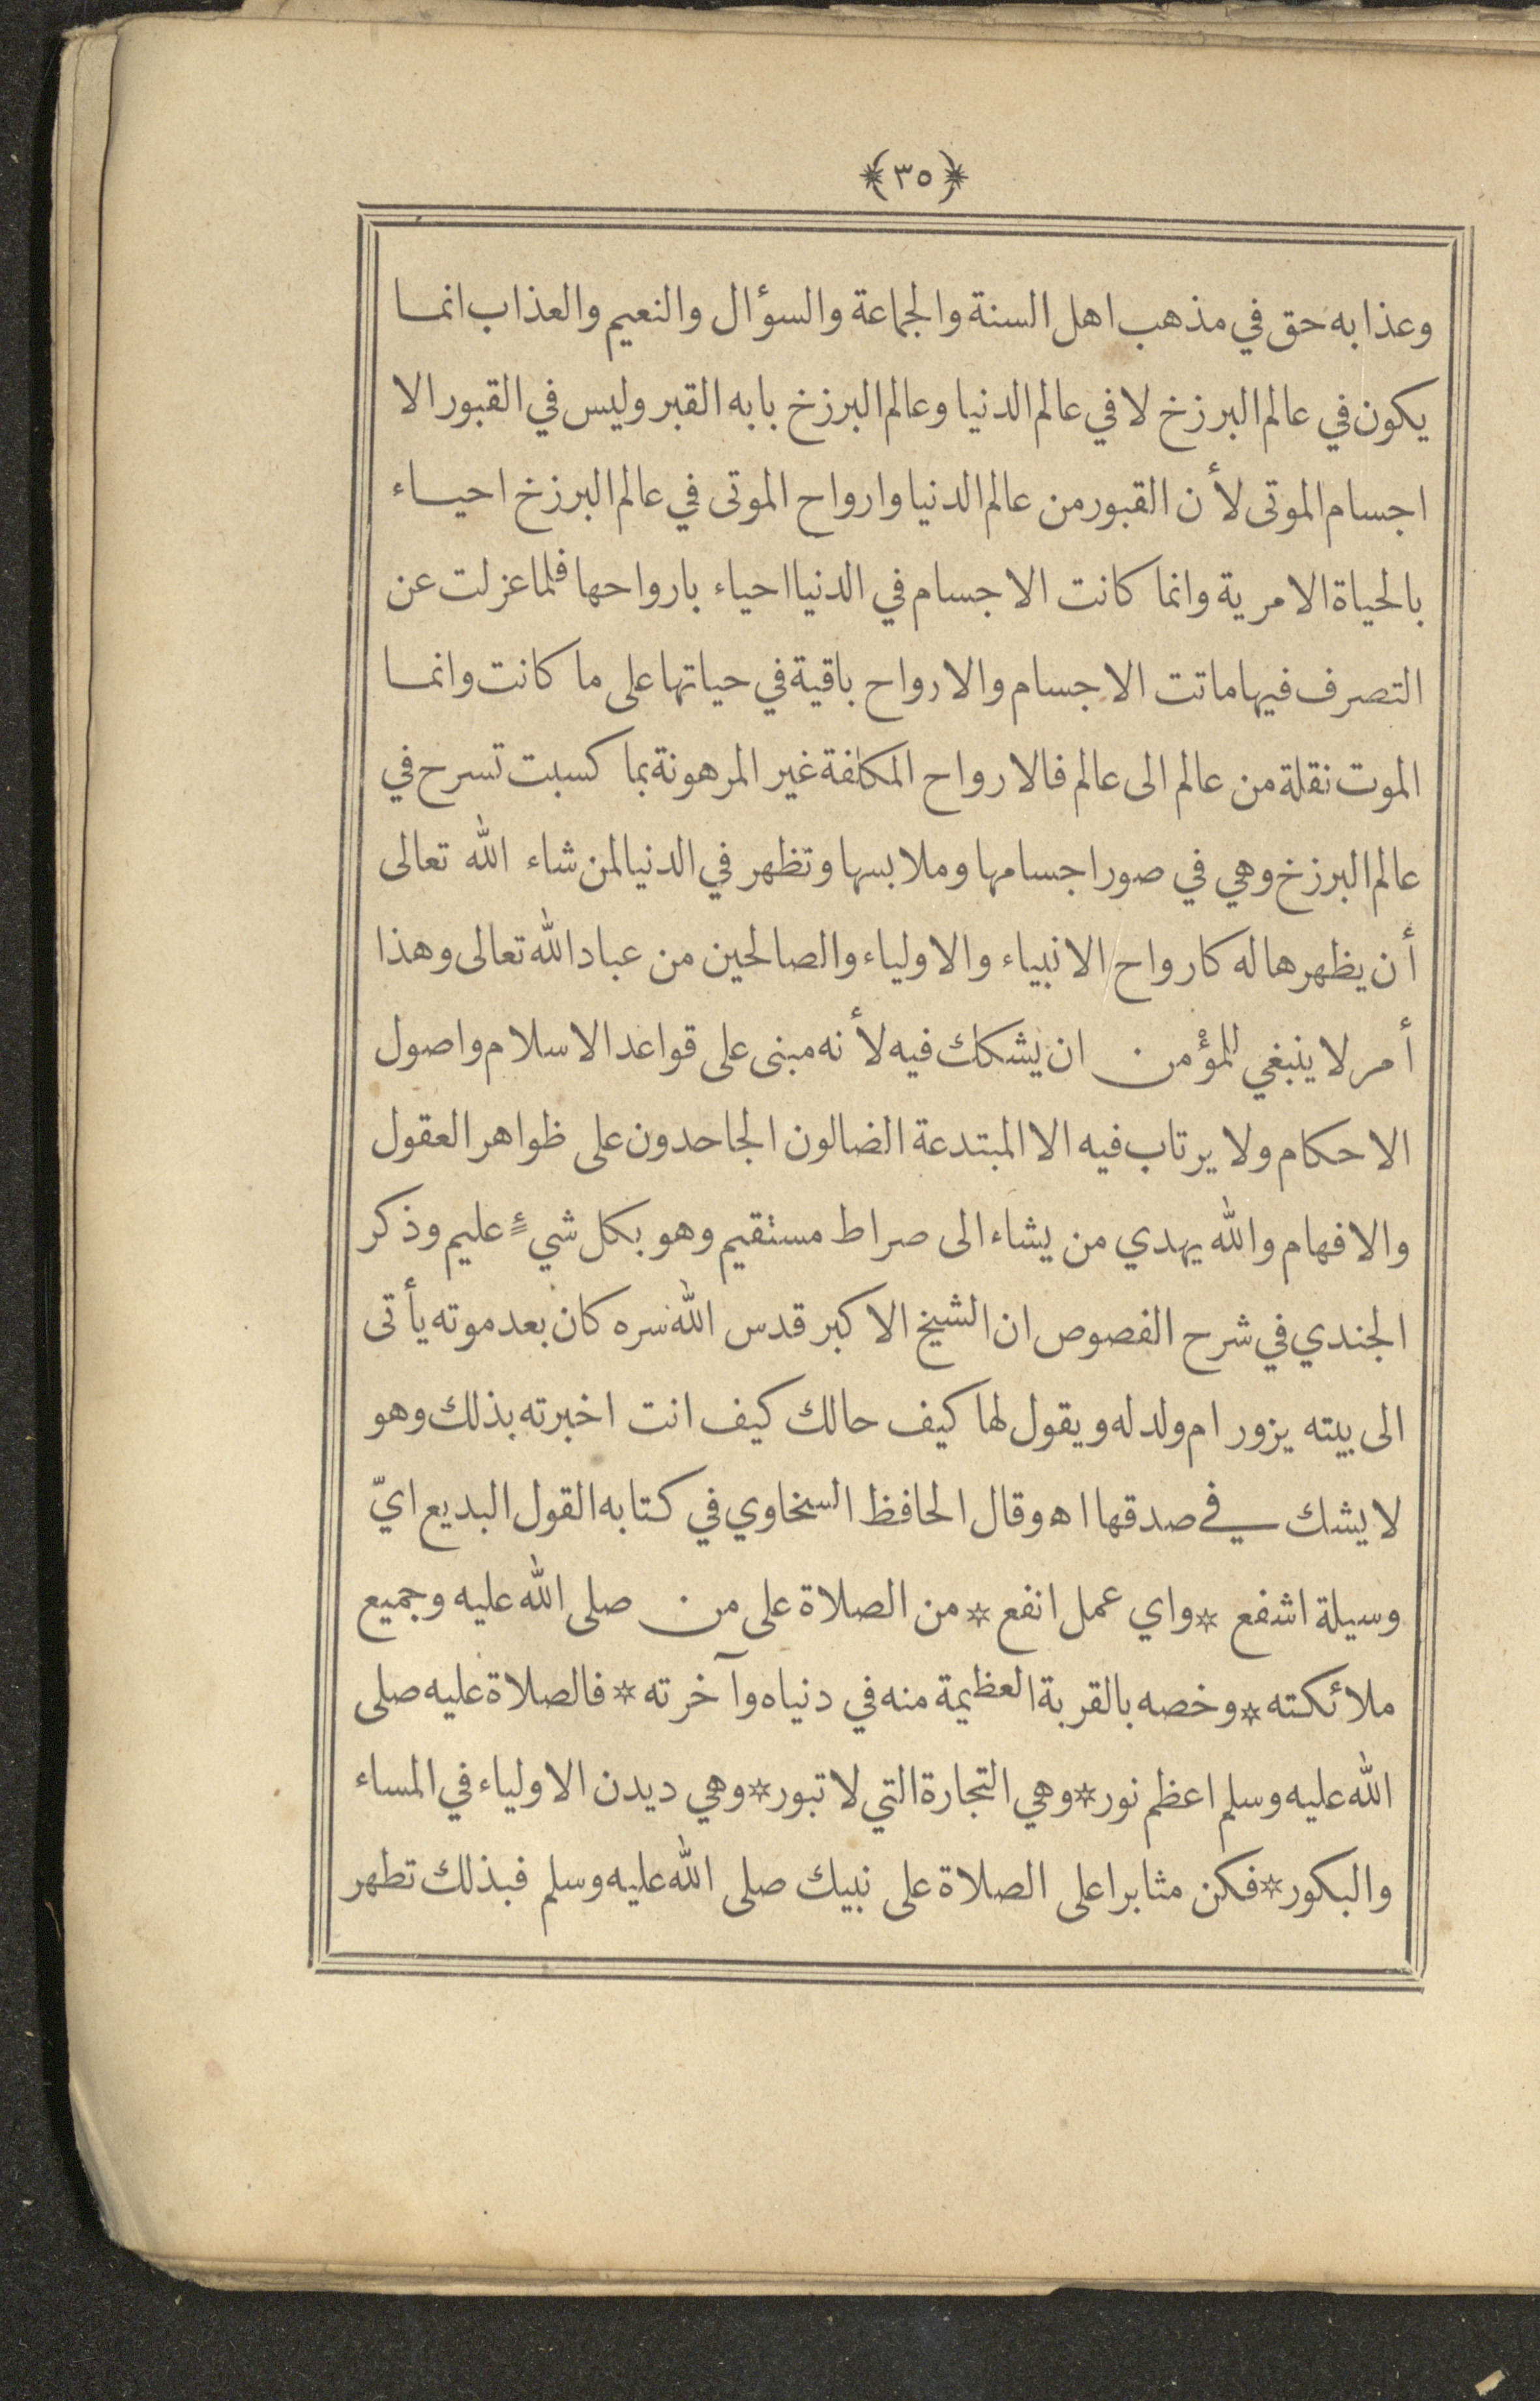 ﴿٣٥﴾
وعذابه حق في مذهب اهل السنة والجماعة والسؤال والنعيم والعذاب انمـا
يكون في عالم البرزخ لا في عالم الدنيا وعالم البرزخ بابه القبر وليس في القبور الا
اجسام الموتى لأن القبور من عالم الدنيا وارواح الموتى في عالم البرزخ احيـاء
بالحياة الامرية وانما كانت الاجسام في الدنيا احياء بارواحها فلما عزلت عن
التصرف فيها ماتت الاجسام والارواح باقية في حياتها على ما كانت وانمـا
الموت نقلة من عالم الى عالم فالارواح المكلفة غير المرهونة بما كسبت تسرح في
عالم البرزخ وهي في صور اجسامها وملابسها وتظهر في الدنيا لمن شاء الله تعالى
أن يظهرها له كارواح الانبياء والاولياء والصالحين من عباد الله تعالى وهذا
أمر لا ينبغي للمؤمن ان يشكك فيه لأنه مبنى على قواعد الاسلام واصول
الاحكام ولا يرتاب فيه الا المبتدعة الضالون الجاحدون على ظواهر العقول
والافهام والله يهدي من يشاء الى صراط مستقيم وهو بكل شيءٍ عليم وذكر
الجندي في شرح الفصوص ان الشيخ الاكبر قدس الله سره كان بعد موته يأتى
الى بيته يزور ام ولد له ويقول لها كيف حالك كيف انت اخبرته بذلك وهو
لا يشك في صدقها اه وقال الحافظ السخاوي في كتابه القول البديع ايّ
وسيلة اشفع * واي عمل انفع * من الصلاة على من صلى الله عليه وجميع
ملائكته * وخصه بالقربة العظيمة منه في دنياه وآخرته * فالصلاة عليه صلى
الله عليه وسلم اعظم نور * وهي التجارة التي لا تبور * وهي ديدن الاولياء في المساء
والبكور * فكن مثابرا على الصلاة على نبيك صلى الله عليه وسلم فبذلك تطهر